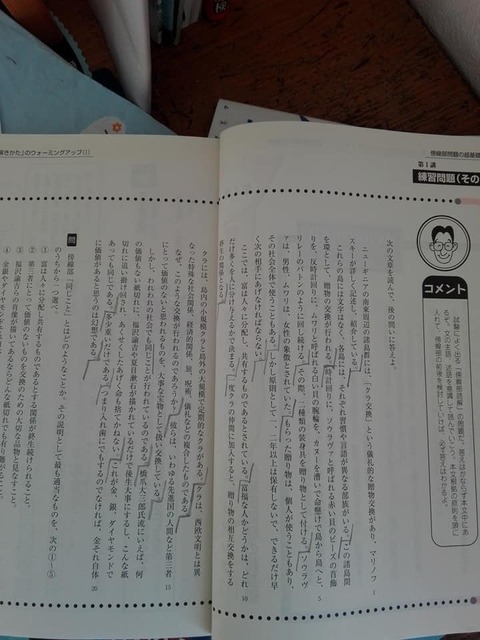 傍線部問題の超基礎
第1講
練習問題(その
コメント
試験によく出る「傍線部説明」の問題だ。答えはかならず本文中にあ
るぞ。文の主語、述語を意識して読んでいこう。本文根拠の原則を頭に
入れ、傍線部の前後を検討していけば、必ず答えはわかるよ。
次の文章を読んで、後の問いに答えよ。
ニューギニアの南東周辺の諸島群には、「クラ交換」という儀礼的な贈物交換があり、マリノフ
スキーが詳しく記述し、紹介している。
これらの島には文字はなく、各島には、それぞれ習慣や言語が異なる部族がいる。この諸島間
を環として、贈物の交換が行われる。時計回りに、ソウラヴァと呼ばれる赤い貝のビーズの首飾
りを、反時計回りに、ムワリと呼ばれる白い貝の腕輪を、カヌーを漕いで命懸けで島から島へと、
リレーのバトンのように回し続ける。その際、二種類の装身具を贈り物として付ける。ソウラヴ
ァは、男性、ムワリは、女性の象徴とされていた。もらった贈り物は、個人が使うこともあり、
その社会全体で使うこともある。しかし原則として一、二年以上は保有しないで、できるだけ早
く次の相手にあげなければならない。
ここでは、富は人々に分配し、共有するものであるとされている。富裕な人かどうかは、どれ
だけ多くを人に分け与えるかで決まる。一度クラの仲間に加入すると、贈り物の相互交換をする
終生の関係となる。
解きかた」のウォーミングアップ(1)
クラには、島内の小規模クラと島外の大規模で定期的なクラがある。クラは、西欧文明とは異
なった特殊な社会関係、経済的関係、旅、呪術、儀礼などの複合したものである。
なぜ、このような交換が行われるのであろうか。彼らは、いわゆる先進国の人間など第三者
にとって価値のないと思われるものを、大事な宝物として扱い交換している。
しかし、われわれの社会でも同じことが行われているのである。橋爪大三郎氏流にいえば、何
の価値もない紙切れに、福沢諭吉や夏目漱石が描かれているだけで後生大事にするし、こんな紙
切れに追い廻され、あくせくしたあげく命も捨てかねない。これが金、銀、ダイヤモンドで
あっても同じである。多少重いだけである。つまり入れ歯にでもするのでなければ、金それ自体
に価値があると思うのは幻想である。
問 傍線部「同じこと」とはどのようなことか。その説明として最も適当なものを、次の①~⑤
のうちから一つ選べ。
① 富は人々に分配し共有するものであるとする関係が終生続けられること。
② 第三者にとっては価値のないものを交換のための大切な品物と見なすこと。
③ 福沢諭吉らの肖像が描いてあるならどんな紙切れでも有り難がること。
④ 金銀やダイヤモンド
5
10
15
20